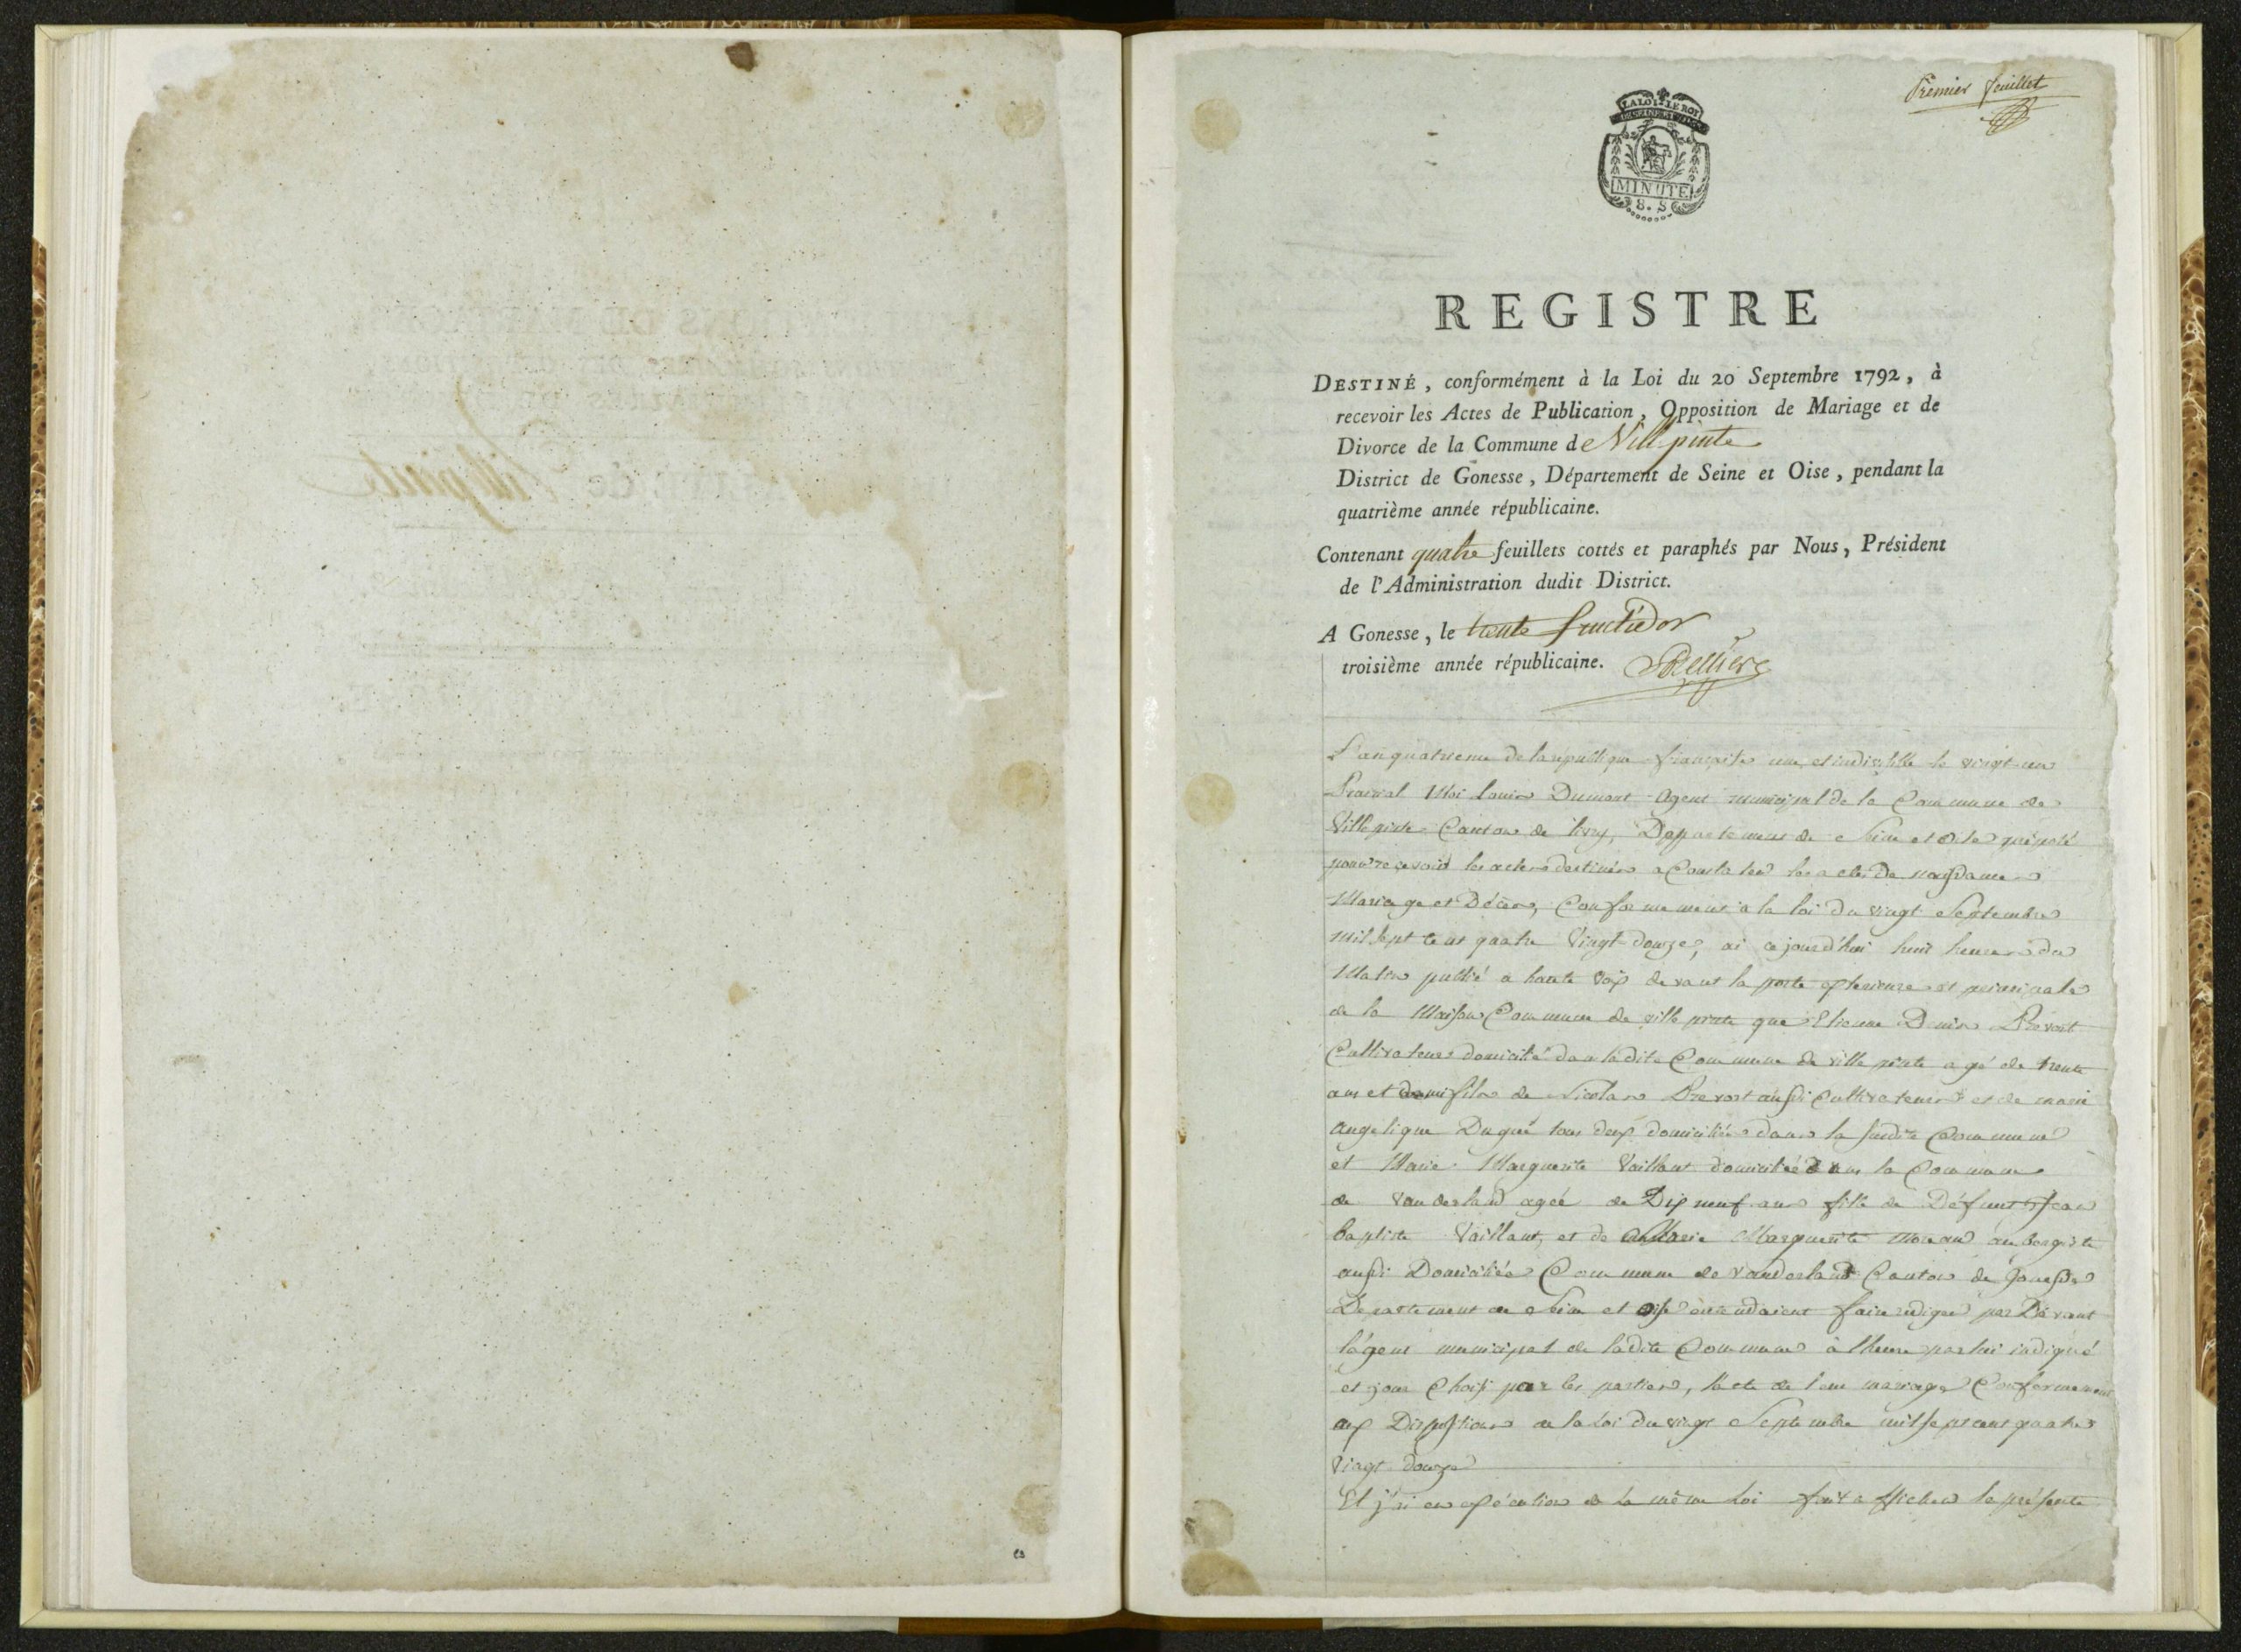 Premier feuillet
LA LOI LE ROI
DE SEINE ET
MINUTE
8. S
REGISTRE
DESTINÉ, conformément à la Loi du 20 Septembre 1792, à
recevoir les Actes de Publication, Opposition de Mariage et de
Divorce de la Commune de Villepinte
District de Gonesse, Département de Seine et Oise, pendant la
quatrième année républicaine.
Contenant quatre feuillets cottés et paraphés par Nous, Président
de l'Administration dudit District.
A Gonesse, le trente fructidor
troisième année républicaine.
L'an quatrieme de la republique française une et indivisible le vingt un
Prairial Moi Louis Dumont Agent municipal de la Commune de
Villepinte Canton de livry, Departement de Seine et Oise préposé
pour recevoir les actes destinés a Constater les actes de naissances
Mariage et Décès, Conformement a la loi du vingt Septembre
mil sept cent quatre Vingt douze, ai ce jourd'hui huit heures du
Matin publié a haute voix devant la porte exterieure et principale
de la Maison Commune de villepinte que Etienne Denis Prevost
Cultivateur domicilié dans ladite Commune de ville pinte agé de trente
ans et demi fils de Nicolas Prevost aussi Cultivateur et de marie
angelique Dugué tous deux domiciliés dans la susdite Commune
et Marie Marguerite Vaillant domiciliée dans la Commune
de Vauderland agée de Dix neuf ans fille de Défunt Jean
baptiste Vaillant, et de Marie Marguerite Moreau aubergiste
aussi Domiciliée Commune de Vauderland Canton de Gonesse
Departement de Seine et oise entendaient faire rediger par Devant
l'agent municipal de ladite Commune à l'heure par lui indiqué
et jour Choisi par les parties, l'acte de leur mariage Conformement
aux Dispositions de la Loi du vingt Septembre mil sept cent quatre
Vingt douze
Et j'ai en exécution de la même Loi fait afficher la présente